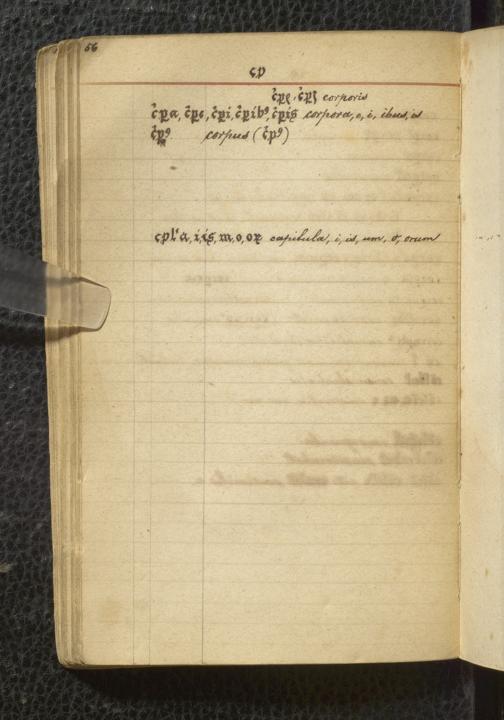 56
cp
c̄p̱ꝭ, c̄p̱ꝭ corporis
c̄p̱a, c̄p̱e, c̄p̱i, c̄p̱ibꝰ, c̄p̱is corpora, e, i, ibus, is
c̄p̱ꝰ. corpus (c̄pꝰ)
cpl'a, i, is, m, o, oꝝ capitula, i, is, um, o, orum